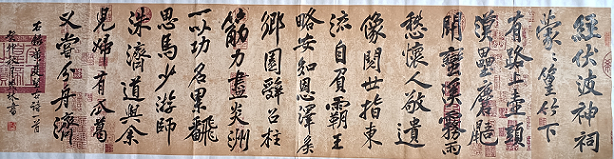 經伏波神祠
蒙〻篁竹下
有路上壺頭
漢壘麏鼯
鬭蠻溪霧雨
愁懷人敬遺
像閱世指東
流自負霸王
略安知恩澤矦
鄉園辭石柱
筋力盡炎洲
一以功名累翻
思馬少游師
洙濟道與余
兒婦有瓜葛
又嘗分舟濟